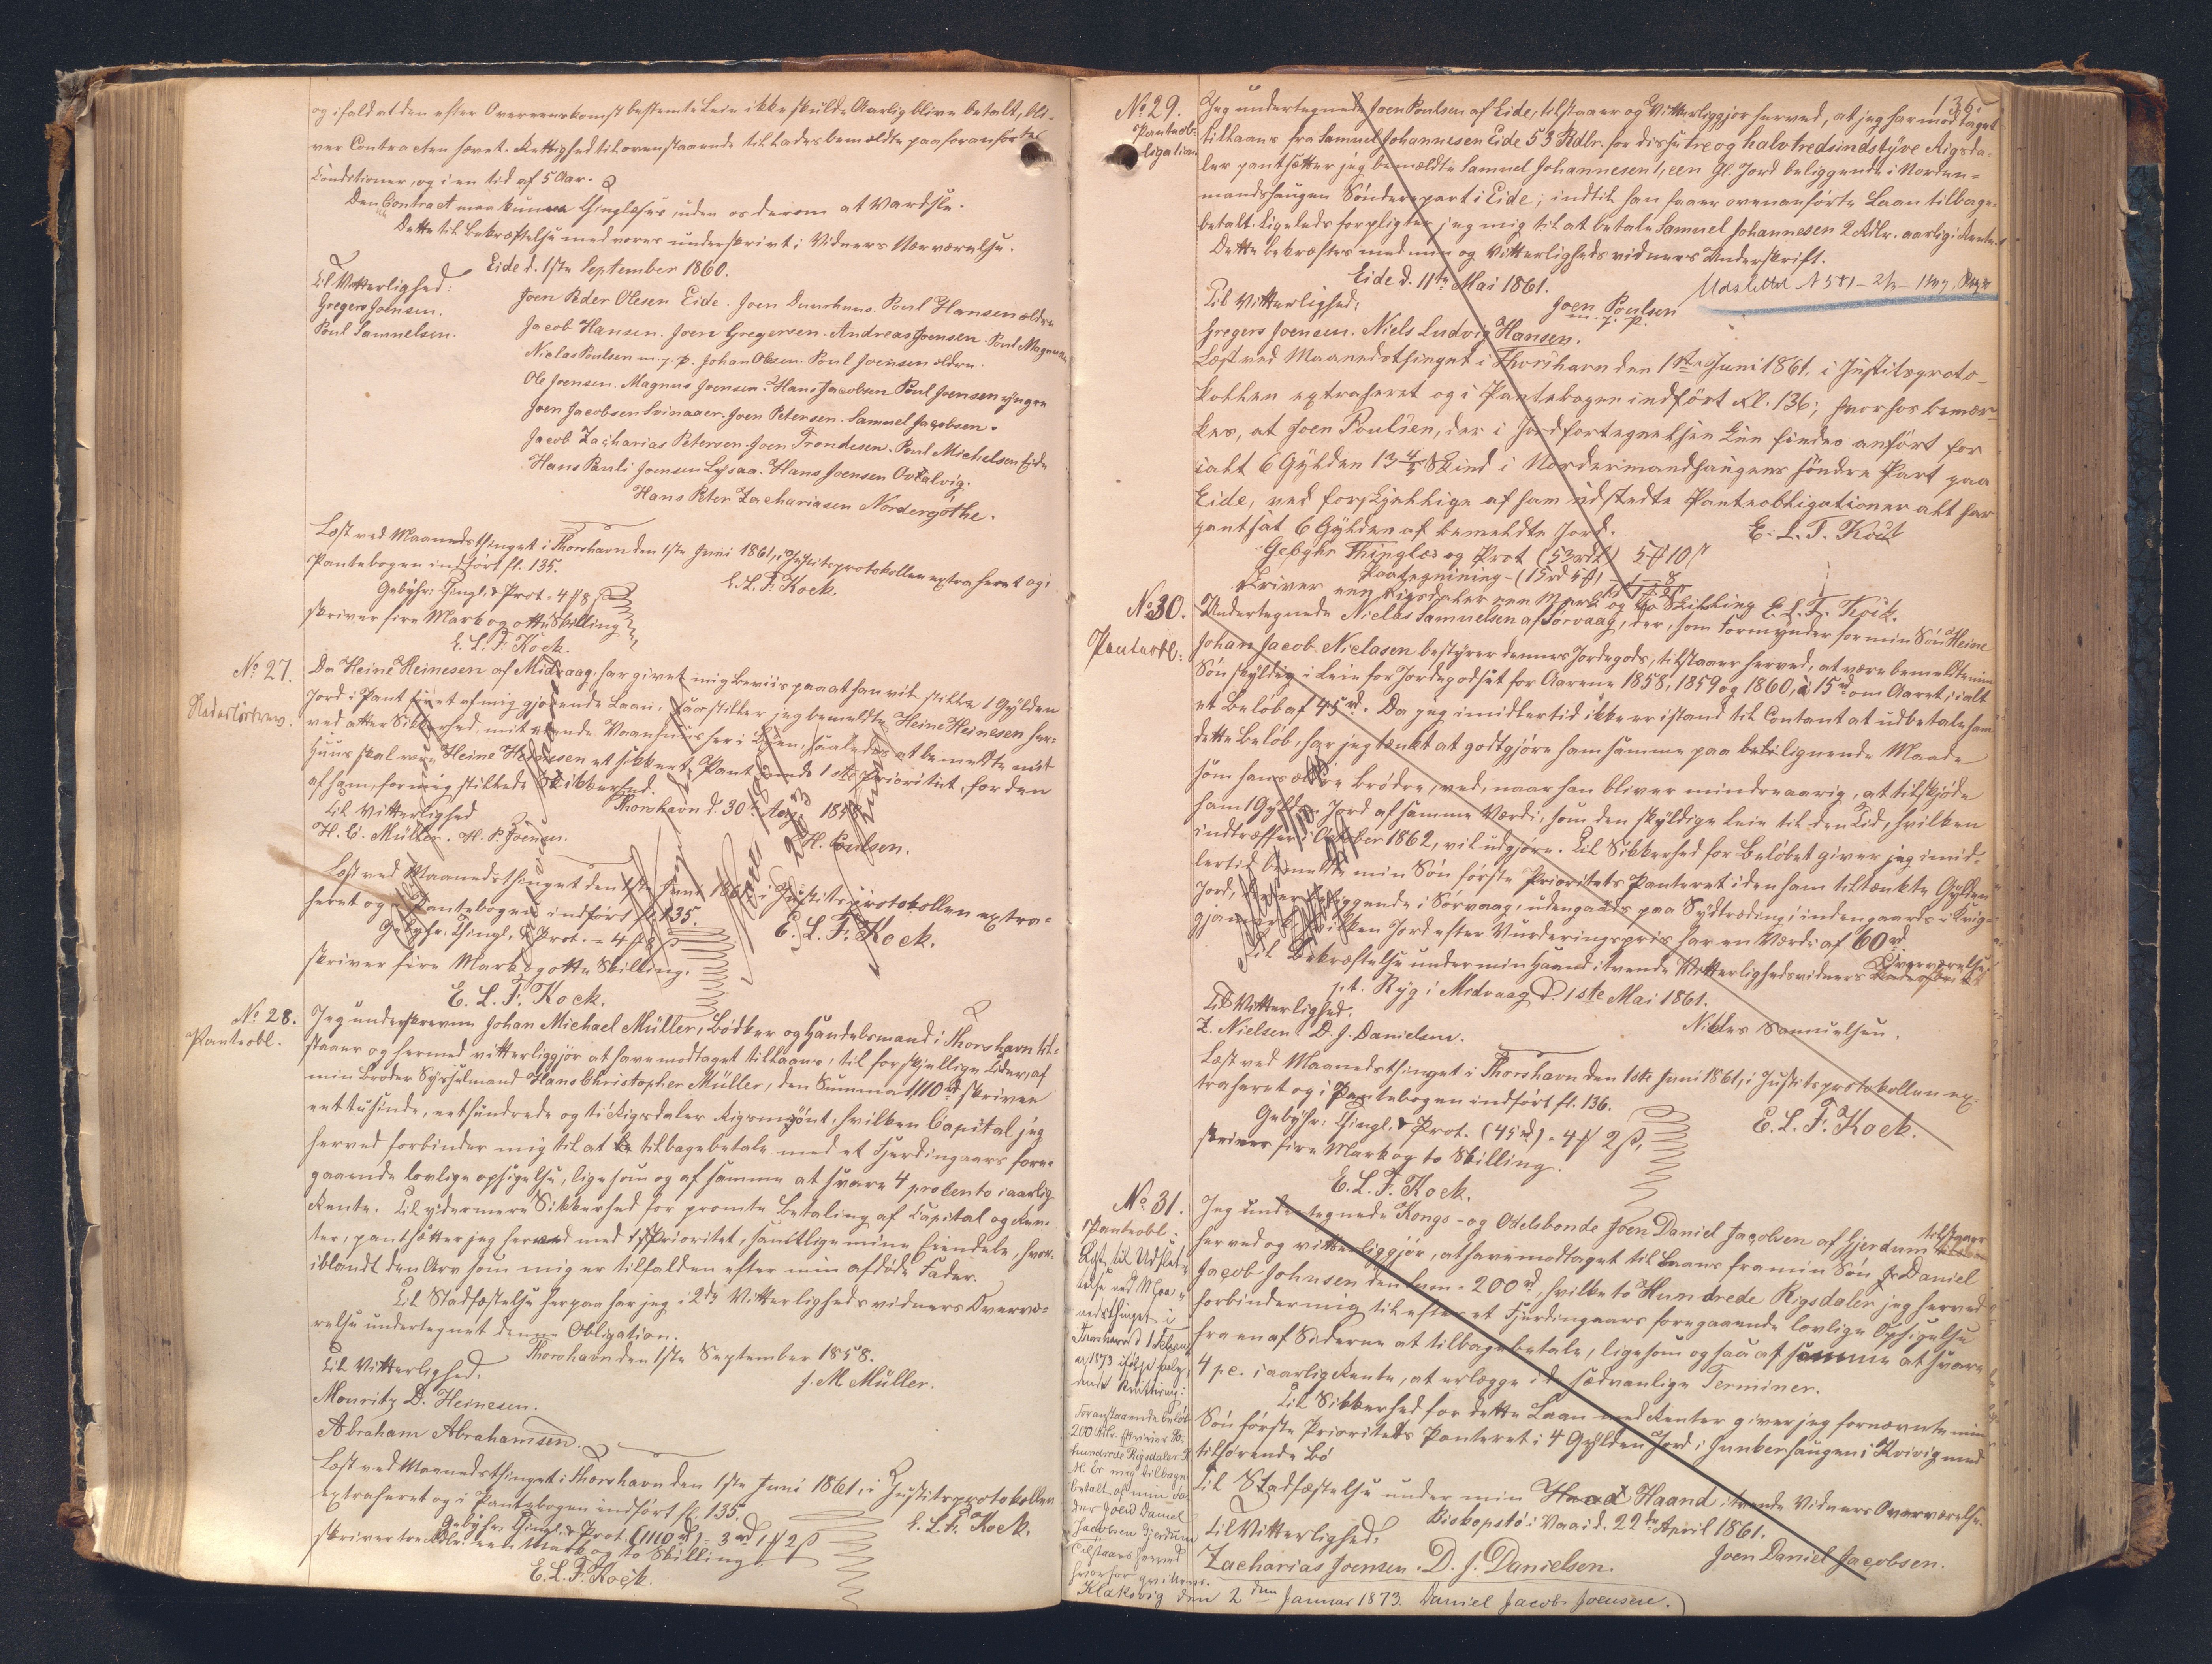 og ifald at den efter Overeenskomst bestemte Leie ikke skulde Aarlig blive betalt, bli-
ver Contracten hævet. Rettighed til ovenstaaende tillades bemeldte paa foranførte
Conditioner, og i en tid af 5 Aar.
Den Contract maa kunne Thinglæses, uden os derom at Vardsle.
Dette til Bekræftelse med vores underskrivt i Vidners Nærværelse.
Eide d. 1ste September 1860.
Til Vitterlighed:
Gregers Joensen.
Poul Samuelsen.
Joen Peder Olesen Eide. Joen Duurhuus. Poul Hansen ældre
Jacob Hansen. Joen Gregersen. Andreas Joensen. Poul Magnussen
Niclas Poulsen m. f. P. Johan Olesen. Poul Joensen ældre.
Ole Joensen. Magnus Joensen. Hans Jacobsen. Poul Joensen yngre
Joen Jacobsen Svinaaer. Joen Petersen. Samuel Jacobsen.
Jacob Zacharias Petersen. Joen Trondesen. Poul Michelsen Eide
Hans Pauli Joensen Lysaa. Hans Joensen Ovtalvig.
Hans Peter Zachariasen Nordergöthe.
Læst ved Maanedsthinget i Thorshavn den 1ste Juni 1861, i Justitsprotokollen extraheret og i
Pantebogen indført fl. 135.
E. L. F. Kock.
Gebyhr: Thingl. & Prot. = 4 ₰ 8 ß
skriver fire Mark og otte Skilling
E. L. F. Kock.
No 27.
Da Heine Heinesen af Midvaag, har givet mig Beviis paa at han vil stille 1 Gylden
Jord i Pant for et af mig gjørende Laan, saa stiller jeg bemeldte Heine Heinesen her-
ved atter Sikkerhed, mit eiende Vaanhuus her i Byen, saaledes at bemeldte mit
Huus skal være Heine Heinesen et sikkert Pant med 1ste Prioritet, for den
af ham, for mig stillede Sikkerhed.
Thorshavn d. 30te Aug. 1858
Til Vitterlighed
H. C. Müller. H. P. Joensen.
H. Poulsen.
Læst ved Maanedsthinget den 1ste Juni 1861, i Justitsprotokollen extra-
heret og i Pantebogen indført fl. 135.
Gebyhr. Thingl. & Prot. = 4 ₰ 8 ß
E. L. F. Kock.
skriver fire Mark og otte Skilling.
E. L. F. Kock.
No 28.
Panteobl.
Jeg underskrevne Johan Michael Müller, Bødker og Handelsmand i Thorshavn til-
staaer og hermed vitterliggjør at have modtaget tillaans, til forskjellige Tider, af
min Broder Sysselmand Hans Christopher Müller, den Summa 1110 rd skriver
eet tusinde, eet hundrede og ti Rigsdaler Rigsmynt, hvilken Capital jeg
herved forbinder mig til at tilbagebetale med et Fjerdingaars fore-
gaaende lovlige opsigelse, ligesom og af samme at svare 4 procento i aarlig
Rente. Til ydermere Sikkerhed for promte Betaling af Capital og Ren-
ter, pantsætter jeg herved med 1ste Prioritet, samtlige mine Eiendele, hvor-
iblandt den Arv som mig er tilfalden efter min afdøde Fader.
Til Stadfæstelse herpaa har jeg i 2de Vitterlighedsvidners Overvæ-
relse undertegnet denne Obligation.
Thorshavn den 1ste September 1858.
Til Vitterlighed.
J. M. Müller.
Mouritz D. Heinesen.
Abraham Abrahamsen.
Læst ved Maanedsthinget i Thorshavn den 1ste Juni 1861, i Justitsprotokollen
extraheret og i Pantebogen indført fl. 135.
E. L. F. Kock.
Gebyhr. Thingl. & Prot. (1110 rd) = 3 rd 1 ₰ 2 ß
skriver tre Rdlr. een Mark og to Skilling
E. L. F. Kock.
136.
No 29.
Panteob-
ligation
Jeg undertegnede Joen Poulsen af Eide, tilstaaer og Vitterliggjør herved, at jeg har modtaget
tillaans fra Samuel Johannesen Eide 53 Rdlr. for disse tre og halvtredsindstyve Rigsda-
ler pantsætter jeg bemældte Samuel Johannesen 1, een Gl. Jord beliggende i Norden-
mandshaugen Sønderepart i Eide, indtil han faaer ovenanførte Laan tilbage-
betalt. Ligeleds forpligter jeg mig til at betale Samuel Johannesen 2 Rdlr. aarlig i Rente.
Dette bekræftes med min og Vitterligheds vidners Underskrift.
Eide d. 11te Mai 1861.
Til Vitterlighed:
Joen Poulsen
m. f. P.
Gregers Joensen. Niels Ludvig Hansen.
Læst ved Maanedsthinget i Thorshavn den 1ste Juni 1861, i Justitsproto-
kollen extraheret og i Pantebogen indført Fl. 136; hvorhos bemær-
kes, at Joen Poulsen, der i Jordfortegnelsen kun findes anført for
ialt 6 Gylden 13 4/5 Skind i Nordermandhaugens søndre Part paa
Eide, ved forskjellige af ham udstedte Panteobligationer alt har
pantsat 6 Gylden af bemeldte Jord.
E. L. F. Kock
Gebyhr Thinglæs og Prot (53 rdl) 5 ₰ 10 ß
Paategnining - (15 rd 5 ₰) - 1 - 8
skriver een Rigsdaler een Mark og to Skilling E. L. F. Kock.
No 30.
Panteobl.
Undertegnede Niclas Samuelsen af Sørvaag, der, som Formynder for min Søn Heine
Johan Jacob Niclasen bestyrer dennes Jordegods, tilstaaer herved, at være bemeldte min
Søn skyldig i Leie for Jordegodset for Aarene 1858, 1859 og 1860, à 15 rd om Aaret, ialt
et Beløb af 45 rd. Da jeg imidlertid ikke er istand til Contant at udbetale ham
dette Beløb, har jeg tænkt at godtgjøre ham samme paa lignende Maade
som hans ældre Brødre, ved, naar han bliver mindreaarig, at tilskjøde
ham 1 Gylden Jord af samme Værdi, som den skyldige Leie til den Tid, hvilken
indtræffer i October 1862, vil udgjøre. Til Sikkerhed for Beløbet giver jeg imid-
lertid bemeldte min Søn første Prioritets Panteret i den ham tiltænkte Gylden
Jord, beliggende i Sørvaag, udengaards paa Sydtræding, indengaards i Krigs-
hvilken Jord efter Vurderingspris har en Værdi af 60 rd.
Til Bekræftelse under min Haand i tvende Vitterlighedsvidners Overværelse
p. t. Ryg i Midvaag d. 1ste Mai 1861.
Til Vitterlighed:
Z. Nielsen D. J. Danielsen.
Niclas Samuelsen.
Læst ved Maanedsthinget i Thorshavn den 1ste Juni 1861, i Justitsprotokollen ex-
traheret og i Pantebogen indført fl. 136.
E. L. F. Kock.
Gebyhr: Thingl. & Prot. (45 rd) = 4 ₰ 2 ß,
skriver fire Mark og to Skilling.
E. L. F. Kock.
No 31.
Panteobl.
Jeg undertegnede Kongs- og Odelsbonde Joen Daniel Jacobsen af Gjerdum tilstaaer
herved og vitterliggjør, at have modtaget til Laans fra min Søn Daniel
Jacob Johnsen den Sum = 200 rd, hvilke to Hundrede Rigsdaler jeg herved
forbinder mig til efter et Fjerdingaars foregaaende lovlige Opsigelse
fra en af Siderne at tilbagebetale, ligesom og saa af samme at svare
4 pc. i aarlig Rente, at erlægge i de sædvanlige Terminer.
Til Sikkerhed for dette Laan med Renter giver jeg fornævnte min
Søn første Prioritets Panteret i 4 Gylden Jord i Junkershaugen i Kvivig med
tilhørende Bø
Til Stadfæstelse under min Haand i tvende Vidners Overværelse.
Biskopstø i Vaai d. 22de April 1861.
Til Vitterlighed:
Zacharias Joensen. D. J. Danielsen.
Joen Daniel Jacobsen.
Læst til Udslet-
telse ved Maa-
nedsthinget i
Thorshavn d 1 Februar
1873 ifølge følg-
ende Kvittering:
Foranstaaende Beløb
200 Rdlr. skriver To
hundrede Rigsdaler R.
M. Er mig tilbage
betalt af min Fa-
der Joen Daniel
Jacobsen Gjerdum
Tilstaaes herved
hvorfor qvitteres.
Klaksvig den 2den Januar 1873. Daniel Jacob Joensen.